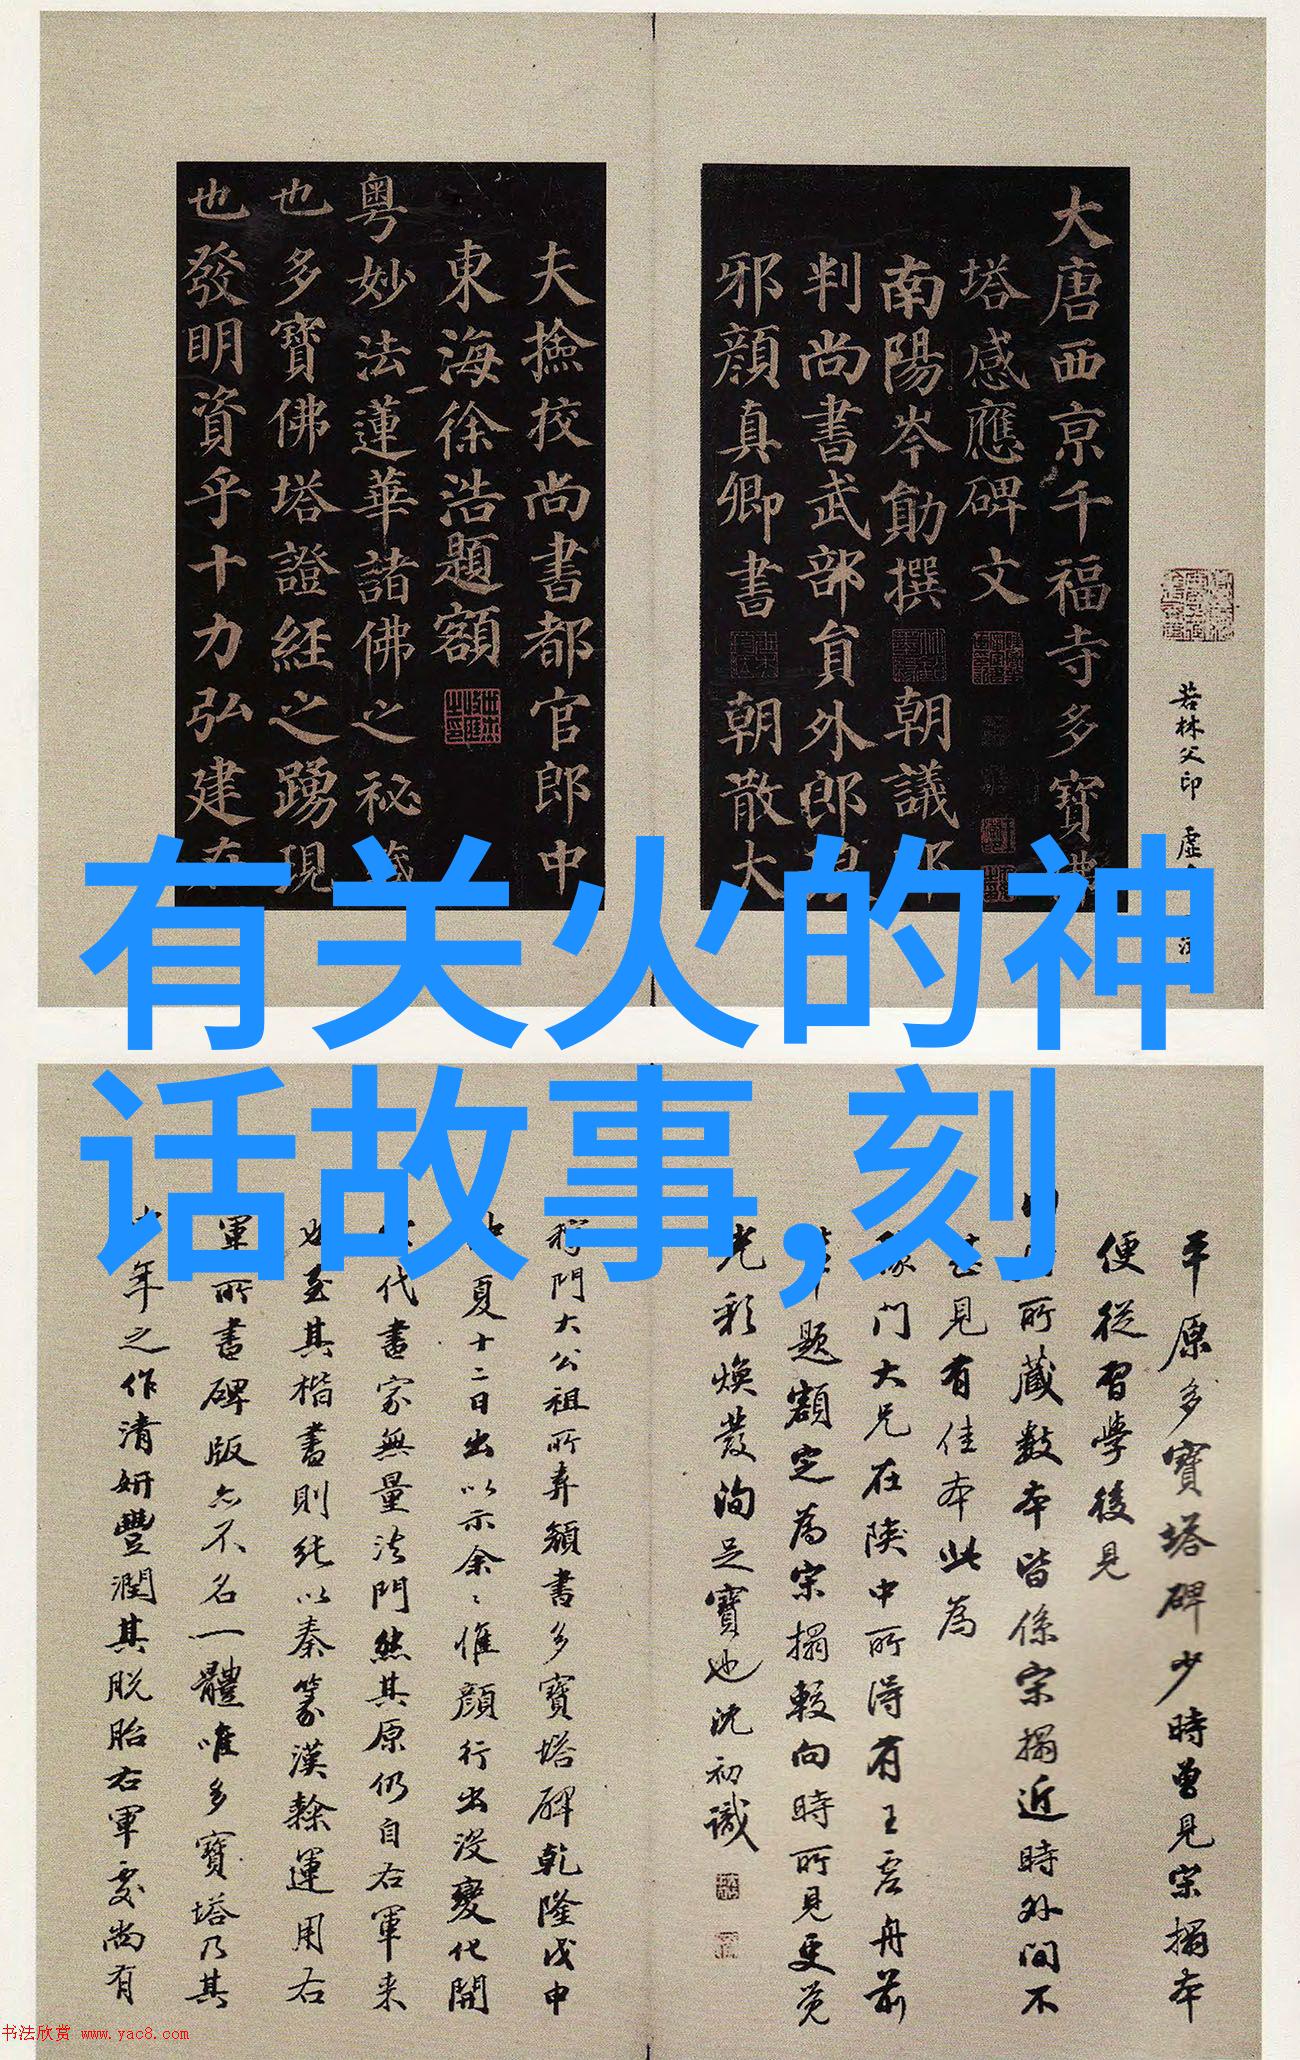 大唐西京千福寺多寶佛
塔感應碑文
南陽岑勛撰 朝議郎
判尚書武部員外郎琅
邪顏真卿書 朝散大
夫撿挍尚書都官郎中
東海徐浩題額
粵妙法蓮華諸佛之祕
也多寶佛塔證經之踴現
也發明資乎十力弘建在
若林父印 虛
有关火的神
话故事,刻
平原多寶塔碑少時曾見宋搨本
便從習學後見
所藏數本皆係宋搨近時外間不
見有佳本此為
門大兄在陝中所得有王虛舟前
題額定為宋搨較向時所見更覺
光彩煥發洵足寶也沈初識
門大公祖所弆顏書多寶塔碑乾隆戊申
夏十二日出以示余〻惟顏行出沒變化開
代書家無量法門然其原仍自右軍来
至其楷書則純以秦篆漢隸運用右
軍所書碑版亦不名一體唯多寶塔乃其
年之作清妍豐潤其脫胎右軍處尚有
书法欣赏 www.yac8.com